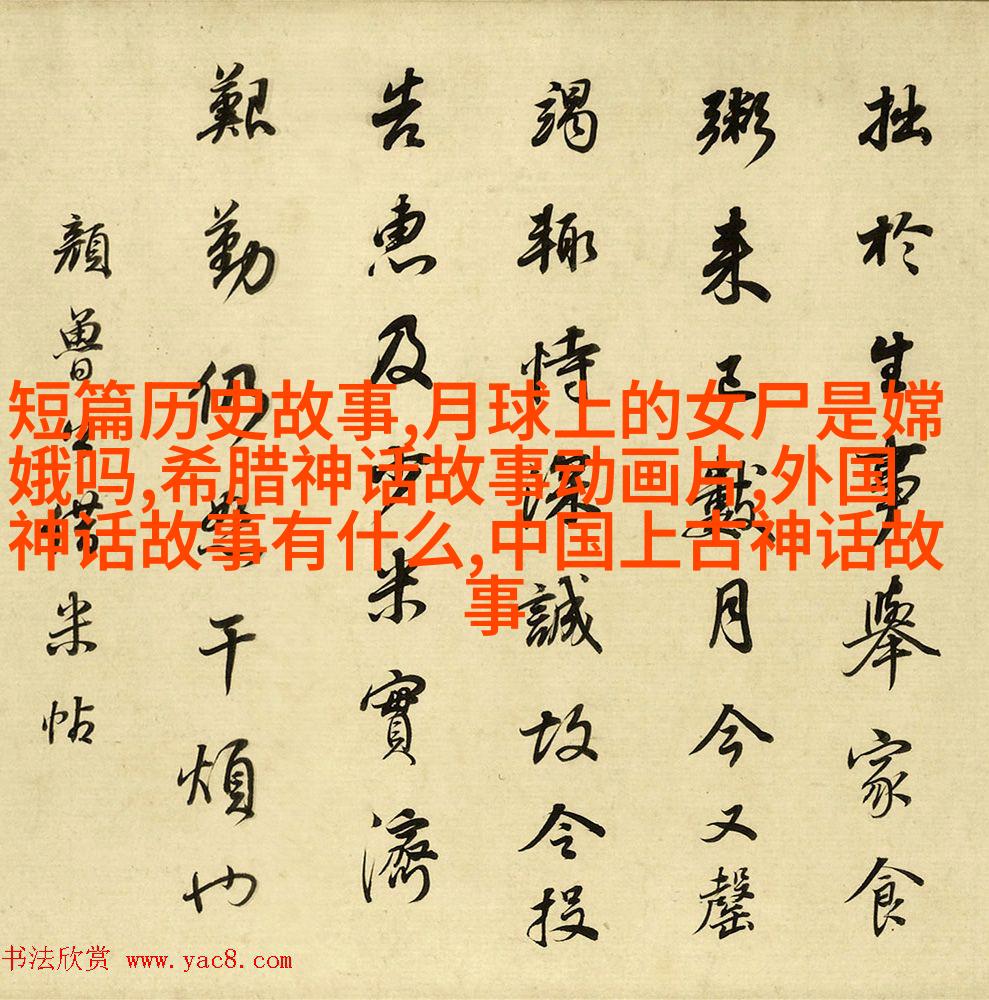 拙於生事舉家食
粥来已數月今又罄
竭輙恃深誠故令投
告惠及少米實濟
艱勤仍恕干煩也
顔魯公借米帖
短篇历史故事,月球上的女尸是嫦
娥吗,希腊神话故事动画片,外国
神话故事有什么,中国上古神话故
事
书法欣赏 www.yac8.com